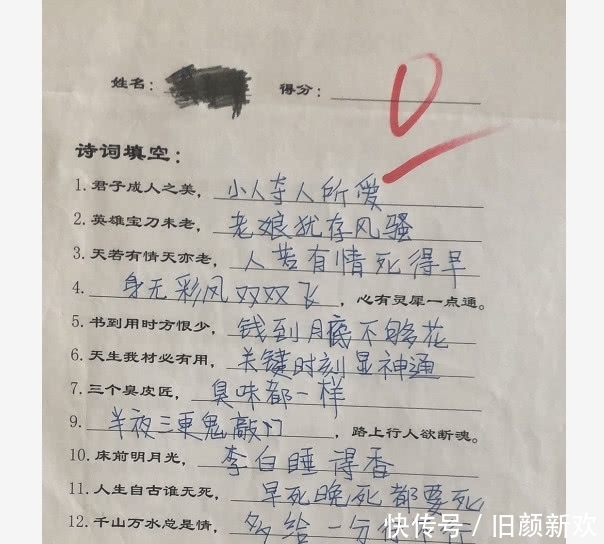 姓名： 得分： 0
诗词填空：
1. 君子成人之美，小人夺人所爱
2. 英雄宝刀未老，老娘犹存风骚
3. 天若有情天亦老，人若有情死得早
4. 身无彩风双双飞，心有灵犀一点通。
5. 书到用时方恨少，钱到月底不够花
6. 天生我材必有用，关键时刻显神通
7. 三个臭皮匠，臭味都一样
9. 半夜三更鬼敲门，路上行人欲断魂。
10. 床前明月光，李白睡得香
11. 人生自古谁无死，早死晚死都要死
12. 千山万水总是情，多给一分
快传号 / 旧颜新欢